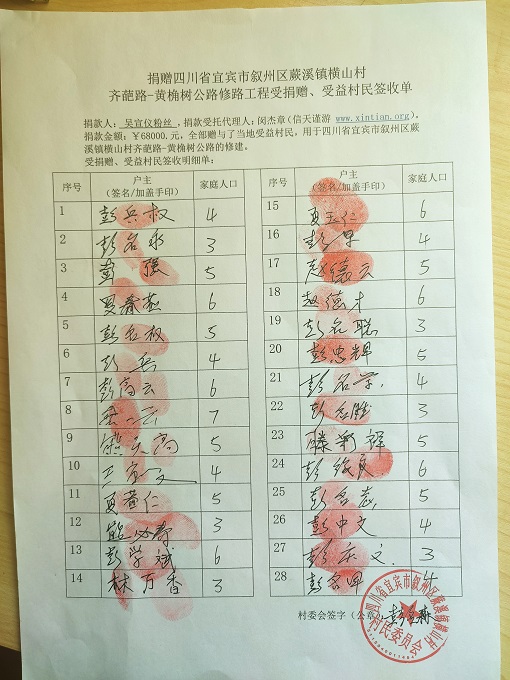 捐赠四川省宜宾市叙州区蕨溪镇横山村
齐葩路-黄桷树公路修路工程受捐赠、受益村民签收单
捐款人：吴宣仪粉丝，捐款受托代理人：闵杰章(信天谨游 www.xintian.org)。
捐款金额：￥68000.元，全部赠与了当地受益村民，用于四川省宜宾市叙州区蕨
溪镇横山村齐葩路-黄桷树公路的修建。
受捐赠、受益村民签收明细单：
序号 户主（签名/加盖手印） 家庭人口
1 彭兵叔 4
2 彭名永 3
3 彭强 5
4 6
5 彭名权 5
6 彭兵 4
7 彭高云 6
8 7
9 熊天高 5
10 4
11 夏黄仁 5
12 熊必寿 3
13 彭学斌 6
14 林万香 3
序号 户主（签名/加盖手印） 家庭人口
15 夏玉仁 6
16 彭早 4
17 赵德云 5
18 赵德才 6
19 彭名聪 3
20 彭忠辉 5
21 彭名学. 4
22 彭名胜 3
23 滕新辉 5
24 彭俊良 6
25 彭名志 5
26 彭中文 4
27 彭庆文. 3
28 彭名早 4
村委会签字（公章）：
四川省宜宾市叙州区蕨溪镇横山村
村民委员会